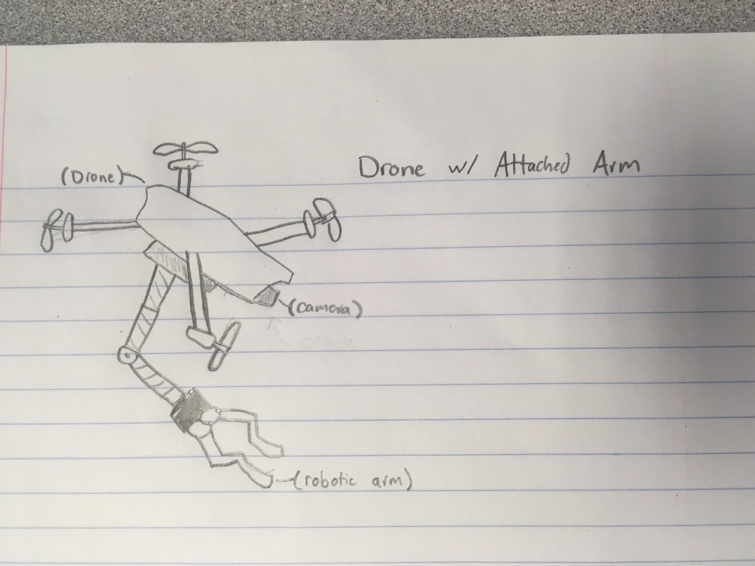 Drone w/ Attached Arm
(Drone)
(camera)
(robotic arm)